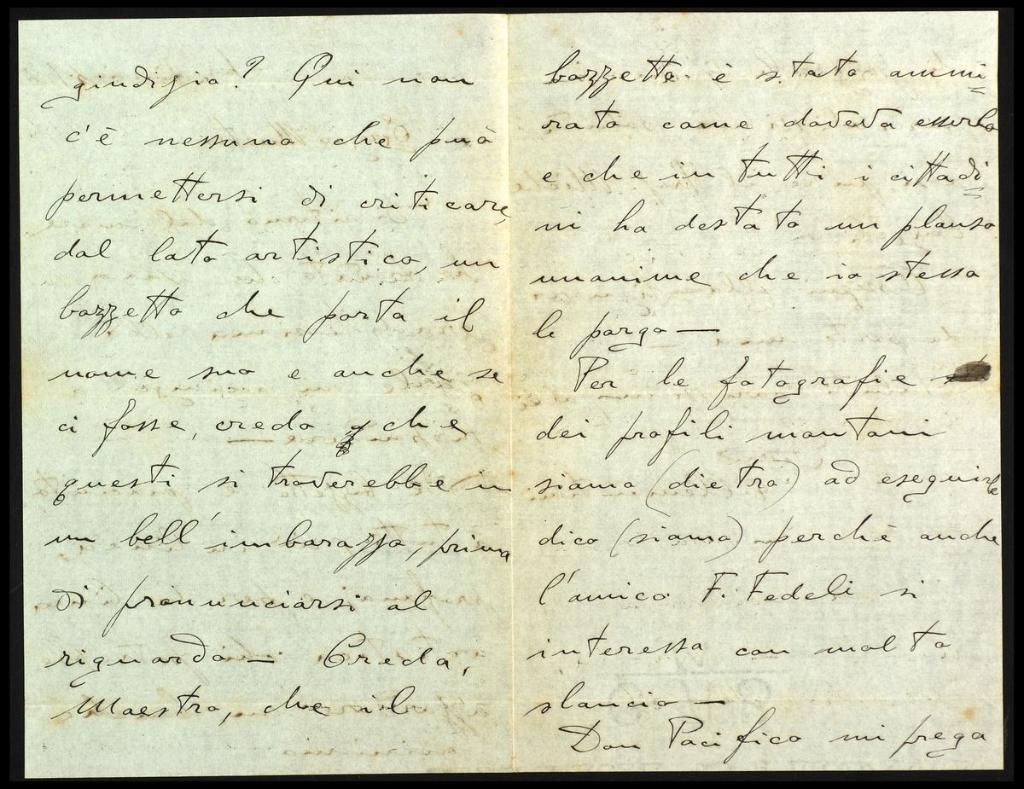 giudizio? Qui non
c'è nessuno che può
permettersi di criticare,
dal lato artistico, un
bozzetto che porta il
nome suo e anche se
ci fosse, credo che
questi si troverebbe in
un bell'imbarazzo, prima
di pronunciarsi al
riguardo — Creda,
Maestro, che il
bozzetto è stato ammi=
rato come doveva esserlo
e che in tutti i cittadi=
ni ha destato un plauso
unanime che io stesso
le porgo —
Per le fotografie
dei profili montani
siamo (dietro) ad eseguirle
dico (siamo) perchè anche
l'amico F. Fedeli si
interessa con molto
slancio —
Don Pacifico mi prega